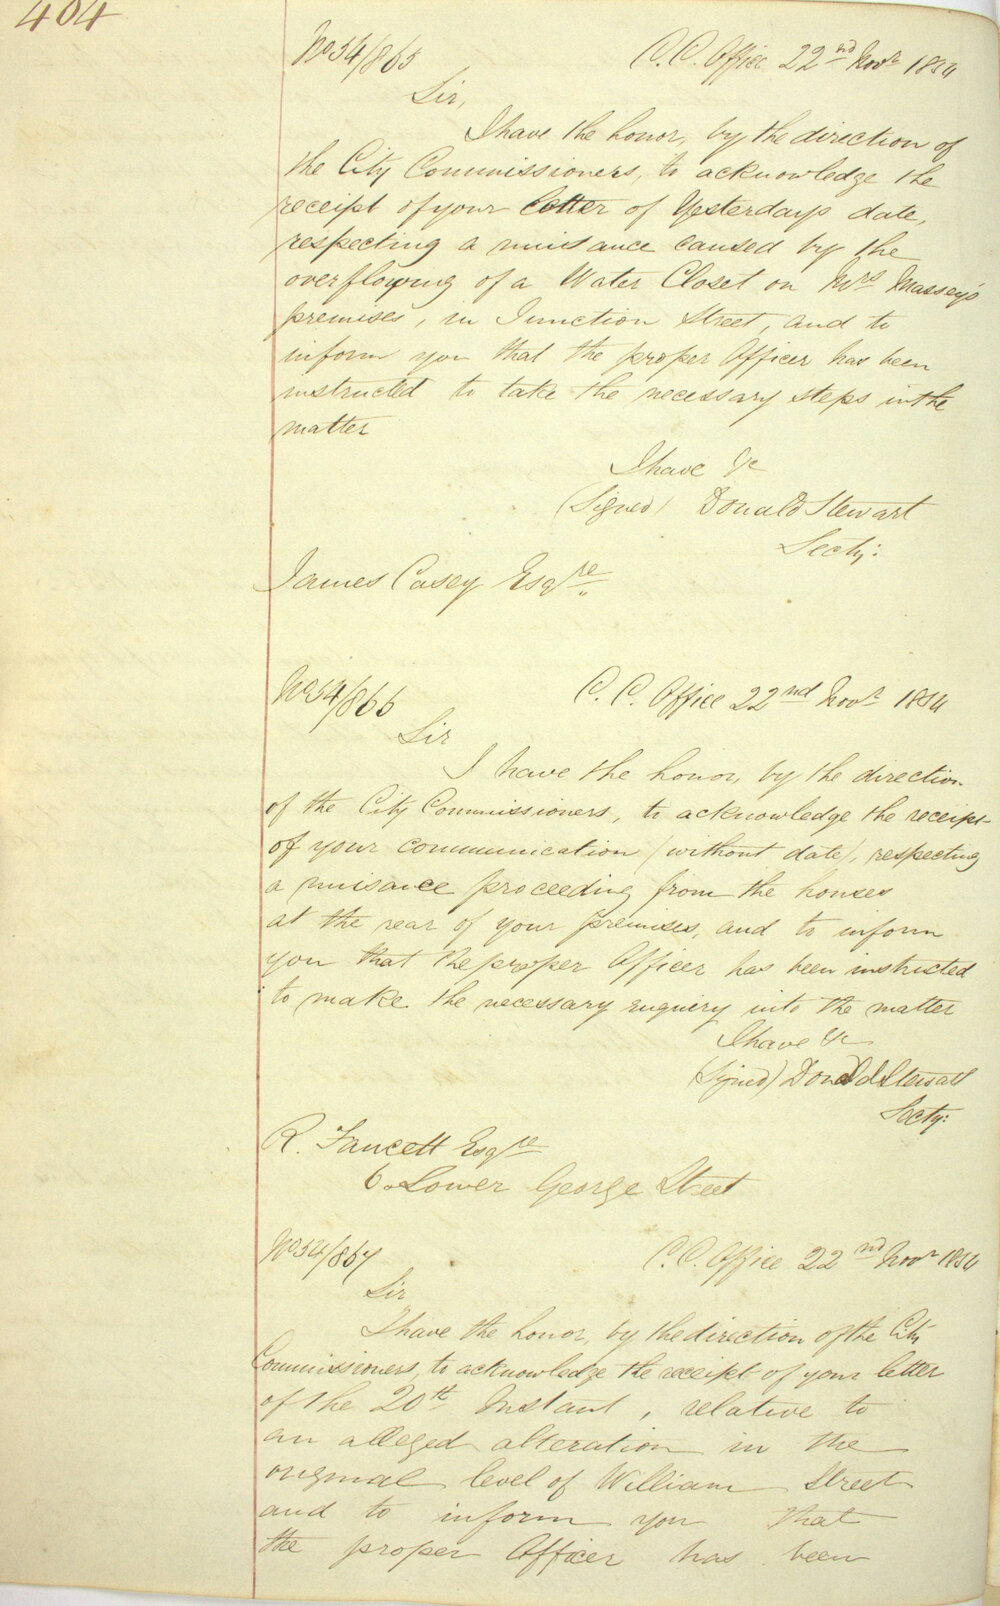 404
No 54/865 C.C. Office 22nd Novr 1854
Sir,
I have the honor, by the direction of
the City Commissioners, to acknowledge the
receipt of your letter of Yesterday's date,
respecting a nuisance caused by the
overflowing of a Water Closet on Mrs Massey's
premises, in Junction Street, and to
inform you that the proper Officer has been
instructed to take the necessary steps in the
matter
I have &c
(Signed) Donald Stewart
Secty:
James Casey Esqre
No 54/866 C.C. Office 22nd Novr 1854
Sir
I have the honor, by the direction
of the City Commissioners, to acknowledge the receipt
of your communication (without date), respecting
a nuisance proceeding from the houses
at the rear of your premises, and to inform
you that the proper Officer has been instructed
to make the necessary enquiry into the matter
I have &c
(Signed) Donald Stewart
Secty:
R. Fawcett Esqre
6. Lower George Street
No 54/867 C.C. Office 22nd Novr 1854
Sir
I have the honor, by the direction of the City
Commissioners, to acknowledge the receipt of your letter
of the 20th Instant, relative to
an alleged alteration in the
original level of William Street
and to inform you that
the proper Officer has been